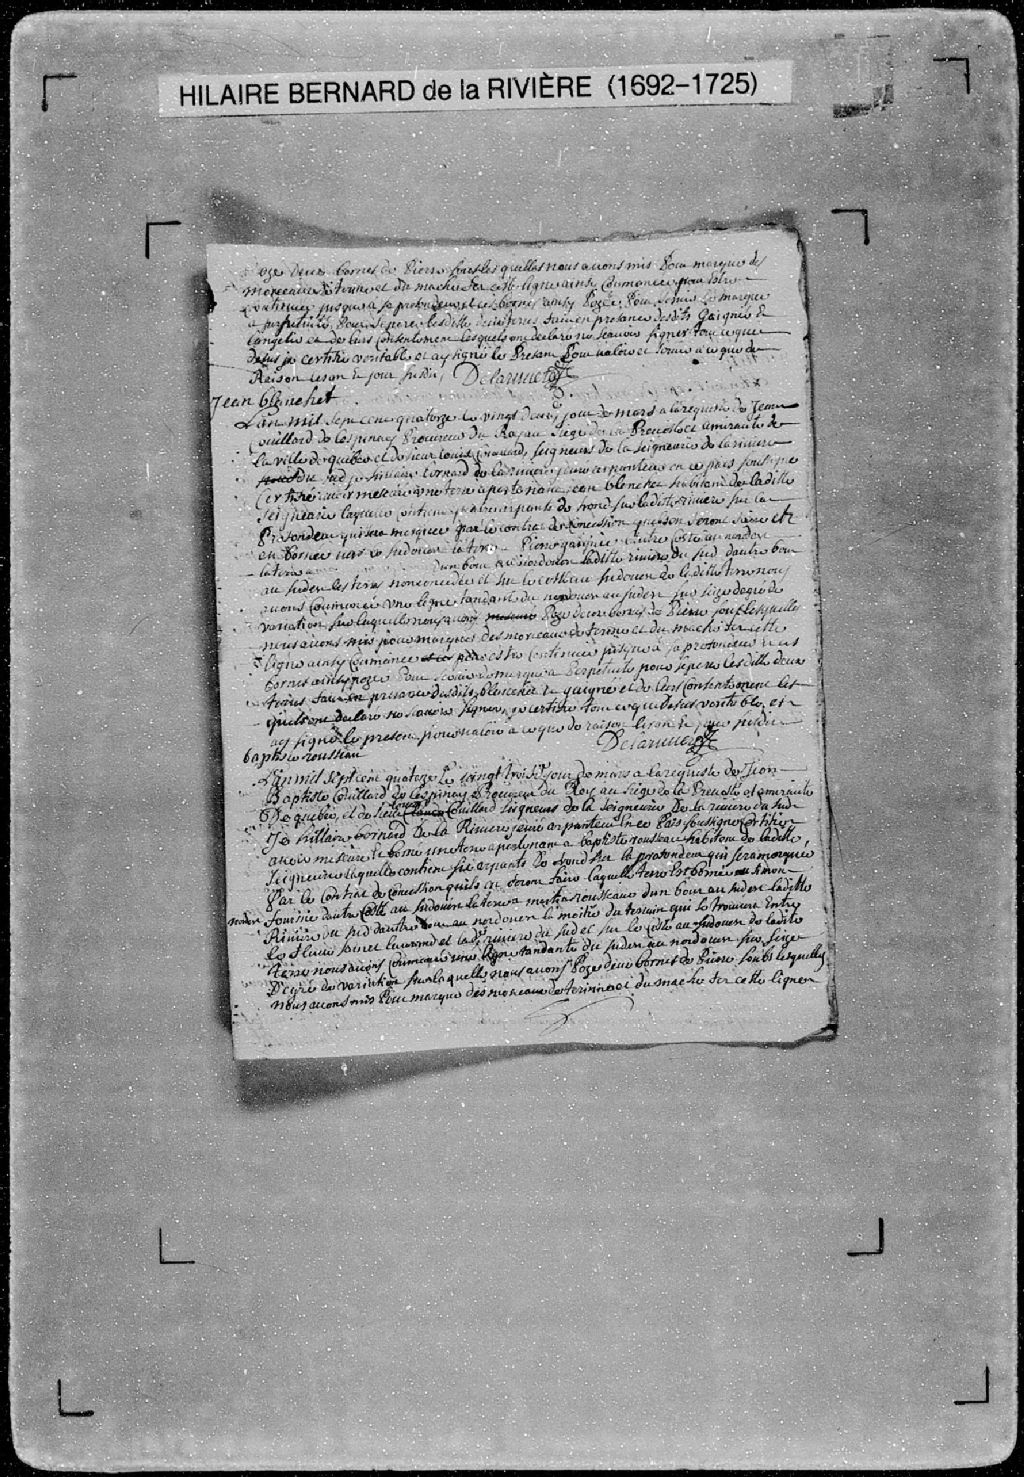 HILAIRE BERNARD de la RIVIÈRE (1692–1725)
deux bornes de Pierre sous lesquelles nous avons mis Pour marque des
morceaux de terrine et du mache fer cette ligne ainsy Commancee pour Estre
Continuee jusques a sa profondeur et ces bornes ainsy Pozee Pour Servir de marque
a perpetuité Pour Separer lesditte deux terres fait en presance desdits Gaignié &
Langelie et de leurs Consentement lesquels ont declaré ne scavoir signer tout ce que
desus je certifie veritable et ay signé le Present Pour valoir et servir a ce que de
Raison les an & jour susdit Delariviere
Jean blanchet
L'an mil sept cent quatorze le vingt deux jour de mars a la requeste de Jean
Couillard de Lespinay Procureur du Roy au Siege de la Prevosté et amirauté de
la ville de quebec et de sieur Louis Couillard, seigneurs de la Seigneurie de la riviere
du sud je hillaire bernard de lariviere juré arpanteur en ce pais sousigné
Certifie avoir mesuré une terre apartenante a jean blanchet habitant de laditte
Seigneurie laquelle contient arpants de front sur laditte riviere sur la
Profondeur qui sera marquee par le contrat de Concession qui s'en seront faire et
en bornee vers le sudouest la terre a Pierre gaignié d'autre coste au nordest
la terre a d'un bout au nordouest laditte riviere du sud dautre bout
au sudest les terres nonconcedee et sur le costeau sudouest de laditte terre nous
avons Commancé une ligne tandante du nordouest au sudest sur seize degré de
variation sur laquelle nous avons Poze deux bornes de Pierre sous lesquelles
nous avons mis pour marques des morceaux de terrine et du mache fer cette
Ligne ainsy Commancee estre Continuee jusque a sa profondeur et ces
bornes ainsy pozee Pour servir de marque a Perpetuite pour separer lesditte deux
terres fait en presence desdits blanchet et gaigné et de leur Consentement les
quels ont declaré ne scavoir Signer, je certifie tout ce que desus veritable, et
ay signé le present pour valoir a ce que de raison les an & jour susdit
Delariviere
baptiste rousseau
L'an mil Sept cent quatorze le vingt trois.e jour de mars a la requeste de Jean
Baptiste Couillard de Lespinay Procureur du Roy au Siege de la Prevosté et amirauté
De quebec, et de sieur Louis Couillard seigneurs de la Seigneurie De la riviere du sud
Je hillaire bernard De la Riviere juré arpanteur En ce Pais Sousigné Certifie
avoir mesuré & borné une terre apartenant a baptiste rousseau habitant de laditte
Seigneurie laquelle contient six arpants De front sur la profondeur qui sera marquée
Par le Contrat de Concession qu'ils en seront faire laquelle terre est bornée a Simon
nordest fournié dautre Costé au sudouest la terre a martin rousseaux dun bout au sudest laditte
Riviere du sud dautre bout au nordouest la moitié du terrain qui se trouvera Entre
le fleuve saint laurend et la ditte riviere du sud et sur le coste au Sudouest de ladite
terre nous avons Commancé une ligne tandante du sudest au nordouest sur seize
Degré de variation sur laquelle nous avons Poze deux bornes de Pierre soubs lesquelles
nous avons mis Pour marque des morceaux de terrine et du mache fer cette ligne